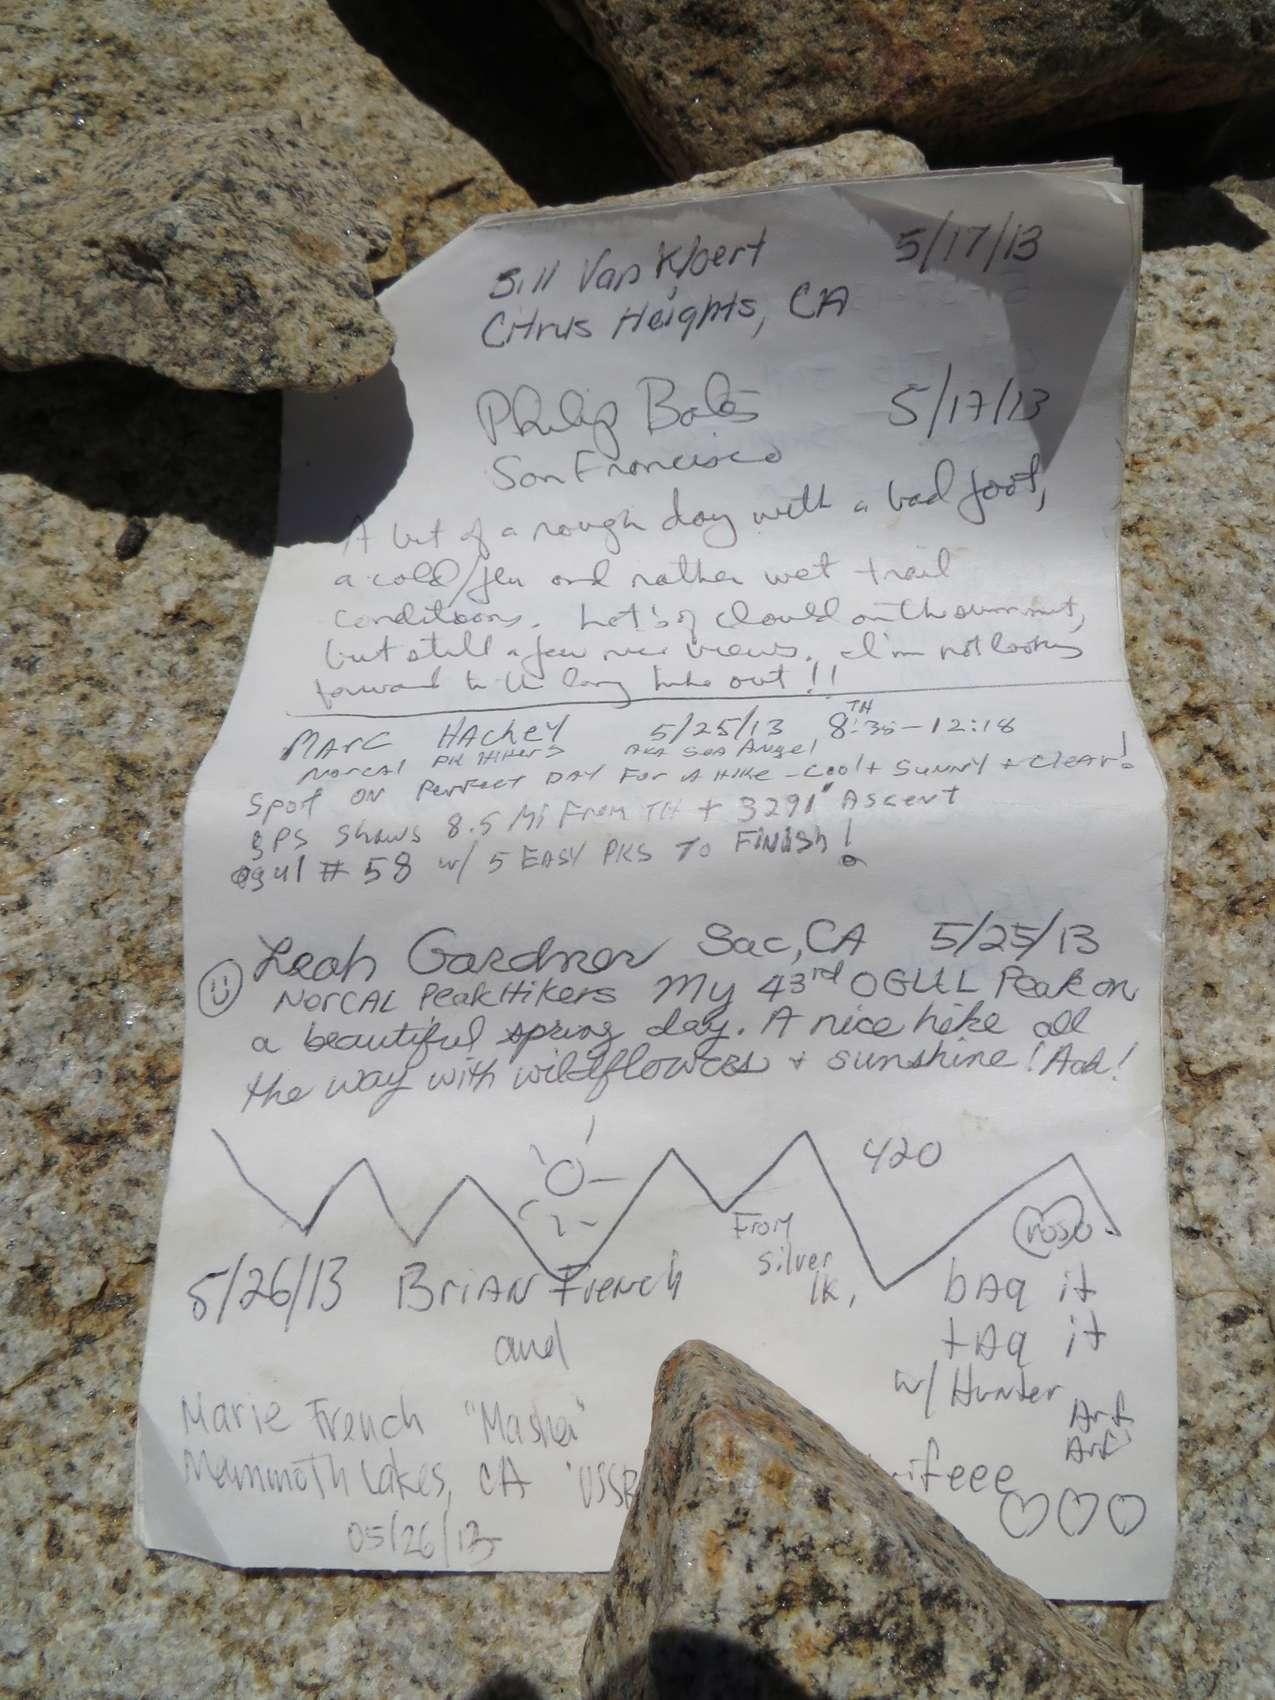 Bill Van Kloert 5/17/13
Citrus Heights, CA
Philip Bates 5/17/13
San Francisco
A bit of a rough day with a bad foot,
a cold/flu and rather wet trail
conditions. Lot's of clouds on the summit,
but still a few nice views. I'm not looking
forward to the long hike out!!
MARC HACHEY 5/25/13 8:35-12:18 TH
NORCAL PK HIKERS AKA SOA Angel
SPOT ON PERFECT DAY FOR A HIKE - COOL + SUNNY + CLEAR!
GPS SHOWS 8.5 MI FROM TH + 3291' ASCENT
ogul # 58 w/ 5 EASY PKS TO FINISH!
Leah Gardner Sac, CA 5/25/13
NORCAL PeakHikers My 43rd OGUL Peak on
a beautiful spring day. A nice hike all
the way with wildflowers + sunshine!
420
From
Silver
lk,
5/26/13 BriAN French
and
bAg it
tAg it
w/ Hunter
Arf
Arf
Marie French "Masha"
Mammoth Lakes, CA "USSR
ifeee
05/26/13